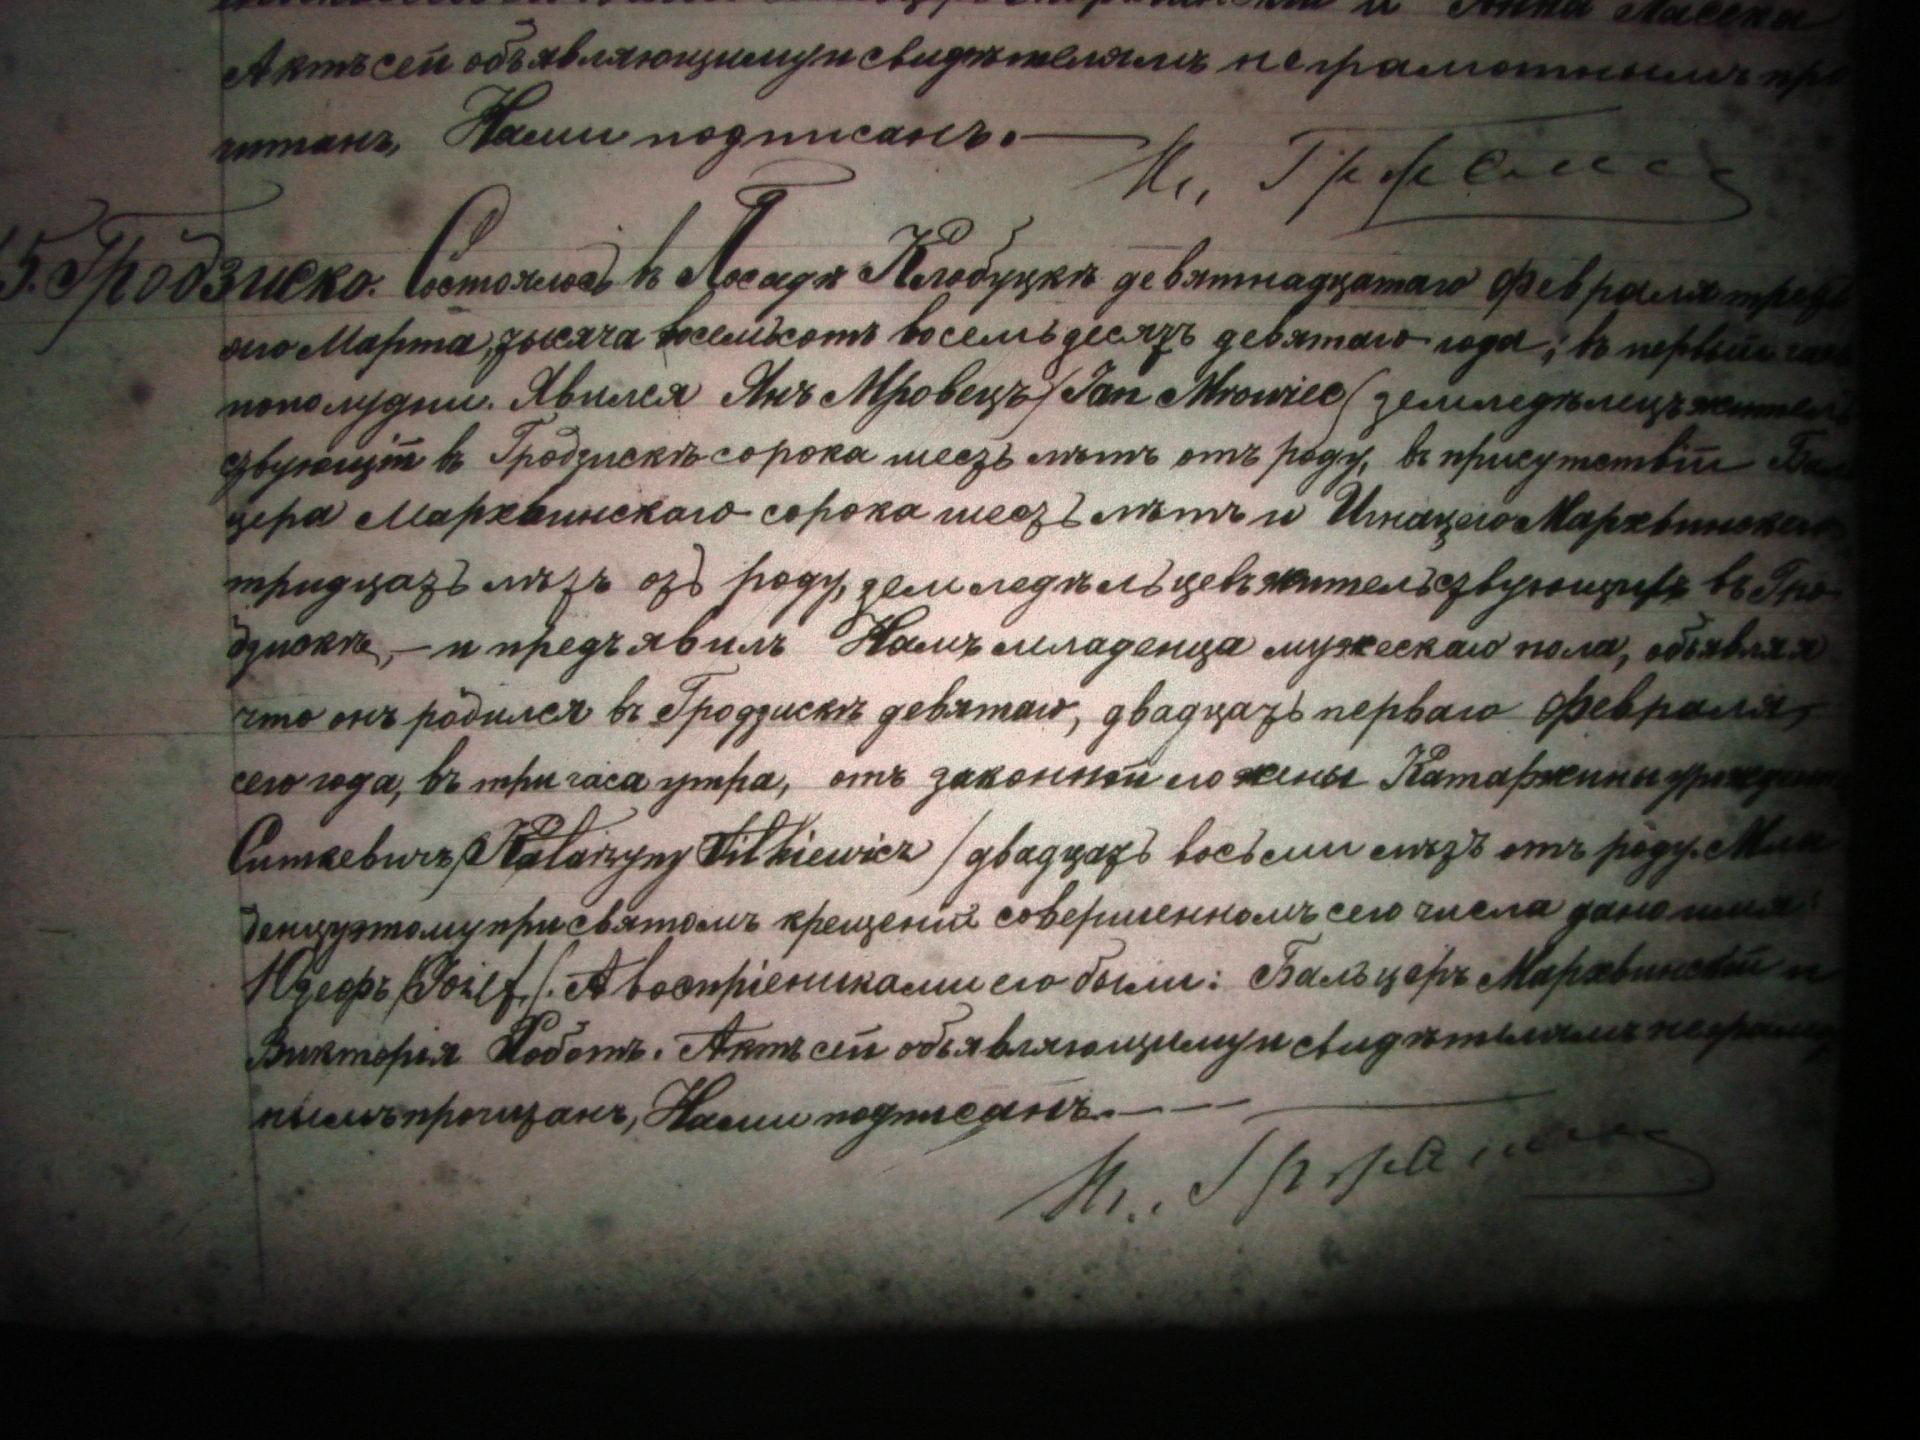 и Анна Масека
Актъ сей объявляющиму и свидѣтелямъ неграмотнымъ про
читанъ, Нами подписанъ. —
5. Гродзиско. Состоялось въ Посадѣ Клобуцкѣ девятнадцатаго Февраля треть
яго Марта, тысяча восемьсотъ восемьдесятъ девятаго года, въ первый часъ
пополудни. Явился Янъ Мровецъ /Jan Mrowiec/ земледѣлецъ жител
ствующій въ Гродзискѣ сорока шесть лѣтъ отъ роду, въ присутствіи Бал
цера Мархвинскаго сорока шесть лѣтъ и Игнацего Мархвинскаго
тридцать лѣтъ отъ роду, земледѣльцевъ жительствующихъ въ Гро
дзискѣ, — и предъявилъ Намъ младенца мужескаго пола, объявляя
что онъ родился въ Гродзискѣ девятаго, двадцать перваго Февраля,
сего года, въ три часа утра, отъ законной его жены Катаржины урожден
Ситкевичъ /Katarzyny Sitkiewicz/ двадцать восьми лѣтъ отъ роду. Мла
денцу этому при святомъ крещеніи совершенномъ сего числа дано имя:
Юзефъ /Józef/. А воспріемниками его были: Бальцеръ Мархвинскій и
Викторія Хоботъ. Актъ сей объявляющиму и свидѣтелямъ неграмот
нымъ прочитанъ, Нами подписанъ. — —